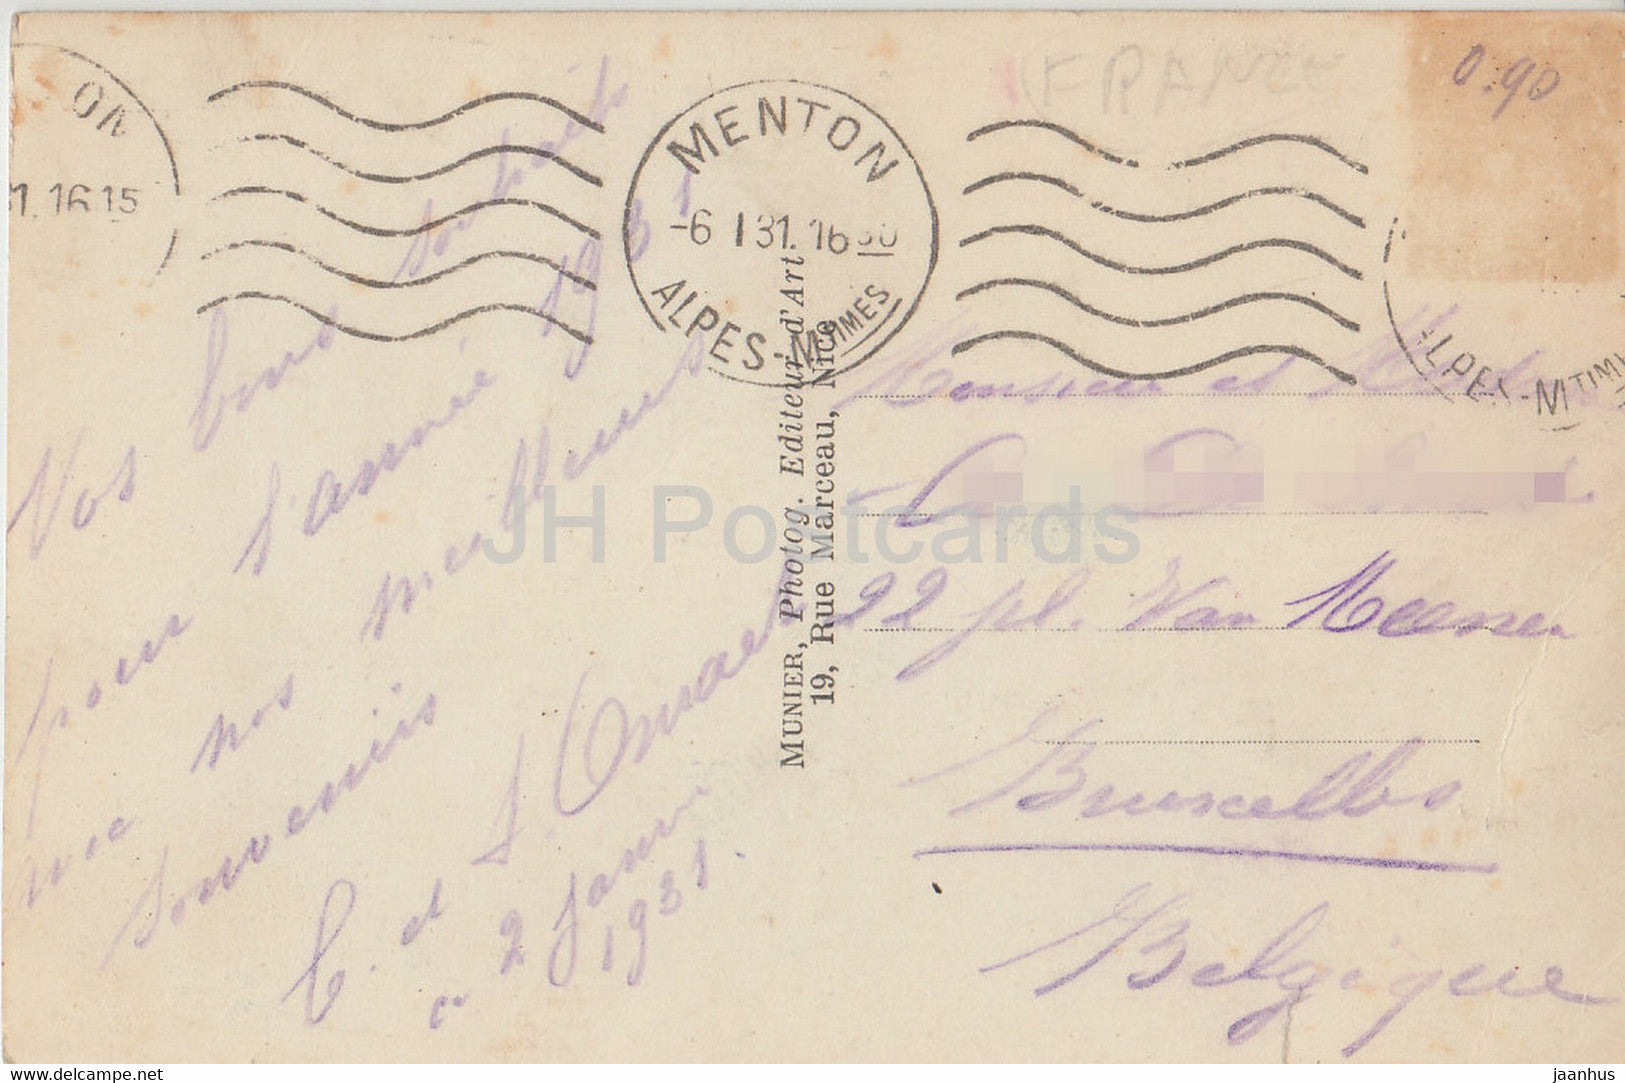 FRANCE
0.90
ON
31. 16 15
MENTON
-6 I 31. 16 30
ALPES-MTIMES
ALPES-MTIMES
Vos bons souhaits
pour l'année 1931
avec nos meilleurs
souvenirs
C. et J.
ce 2 Janvier
1931.
MUNIER, Photog. Editeur d'Art
19, Rue Marceau, Nice
Monsieur et
22 pl. Van Meenen
Bruxelles
Belgique
JH Postcards
www.delcampe.net
jaanhus